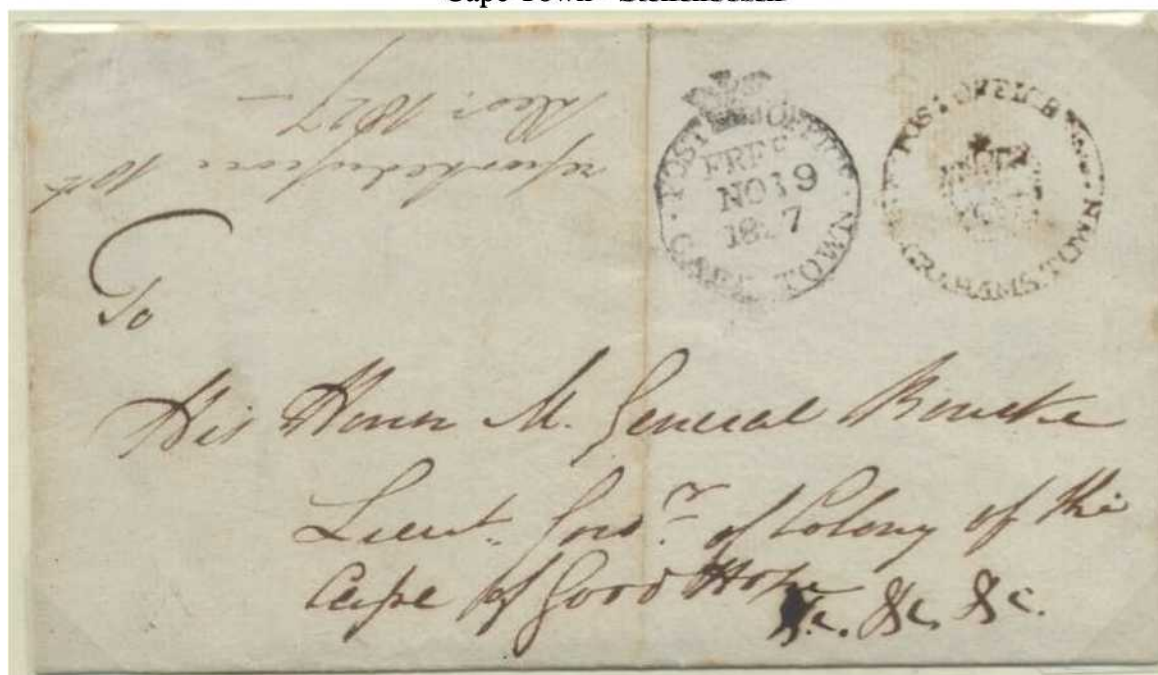 Cape Town
reported upon 10th
Decr 1827 —
POST OFFICE
FREE
NO 19
1827
CAPE TOWN
POST OFFICE
GRAHAMS.TOWN
To
His Honor M. General Bourke
Lieut. Govr. of Colony of the
Cape of Good Hope
&c. &c. &c.